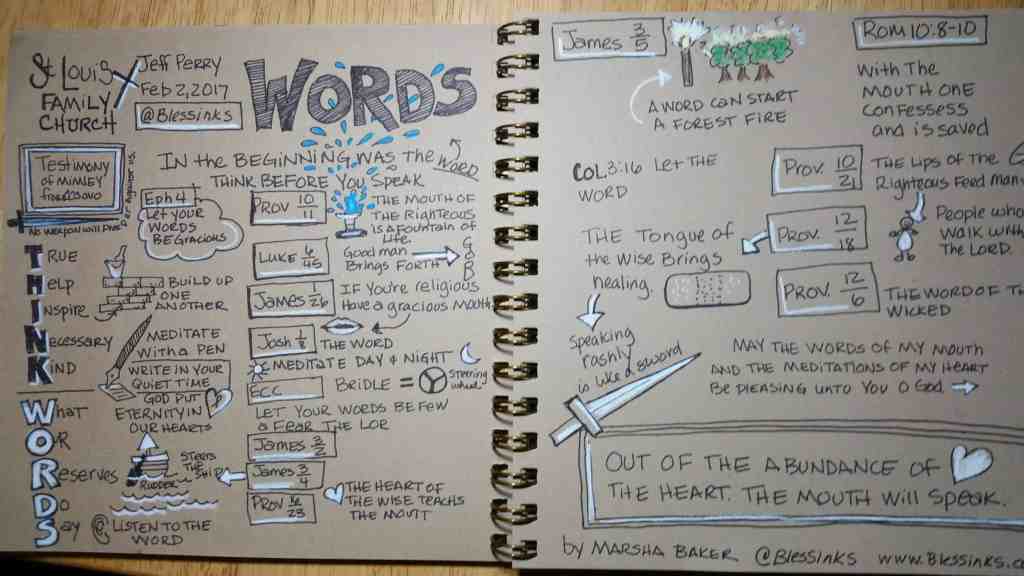 St. Louis
FAMILY
CHURCH
Jeff Perry
Feb 2, 2017
@Blessinks
WORDS
Testimony
of MIMEY
No weapon will
against
IN the BEGINNING WAS the WORD
THINK BEFORE YOU SPEAK
Eph 4
Let your
WORDS
BE Gracious
PROV 10/11
THE MOUTH OF
THE Righteous
IS A FOUNTAIN OF
Life.
LUKE 6/45
Good man
Brings FORTH
GOOD
James 1/26
IF YOU'RE religious
HAVE A gracious Mouth
Josh 1/8
THE WORD
MEDITATE DAY & NIGHT
ECC
BRIDLE =
Steering
wheel
LET YOUR WORDS BE FEW
& FEAR THE LOR
James 3/2
James 3/4
PROV 16/23
THE HEART OF
THE WISE TEACHS
THE MOUTT
THINK
TRUE
Help
Inspire
Necessary
KIND
BUILD UP
ONE
ANOTHER
MEDITATE
WITH A PEN
WRITE IN YOUR
QUIET TIME
GOD PUT
ETERNITY IN
OUR HEARTS
WORDS
What
OR
Reserves
Do
Say
STEERS
THE
SHIP
RUDDER
@ LISTEN TO THE
WORD
James 3/5
A WORD CAN START
A FOREST FIRE
ROM 10:8-10
WITH THE
MOUTH ONE
CONFESSESS
and is saved
COL 3:16 LET THE
WORD
Prov. 10/21
THE Lips OF THE
Righteous Feed Many
THE Tongue of
the Wise Brings
healing.
PROV. 12/18
People who
WALK WITH
THE LORD.
PROV. 12/6
THE WORD OF T
WICKED
speaking
rashly
is like a sword
MAY THE WORDS OF MY MOUTH
AND THE MEDITATIONS OF MY HEART
BE PLEASING UNTO YOU O GOD
OUT OF THE ABUNDANCE OF
THE HEART. THE MOUTH Will SPEAK.
by MARSHA BAKER @BLessINKS www.Blessinks.c